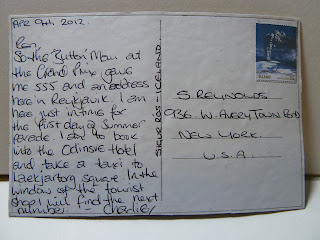 Apr 9th. 2012.
Ren
So the "Button" Man at
the Grand Prix gave
me 555 and an address
here in Reykjavik. I am
here just in time for
the first day of Summer
parade. I am to book
into the Odinsve Hotel
and take a taxi to
Laekjartorg square. In the
window of the tourist
shop I will find the next
number - Charlie/
SIGUR RÓS - ICELAND.
S. REYNOLDS
936. W. AVERY TOWN ROAD
NEW YORK
U.S.A.